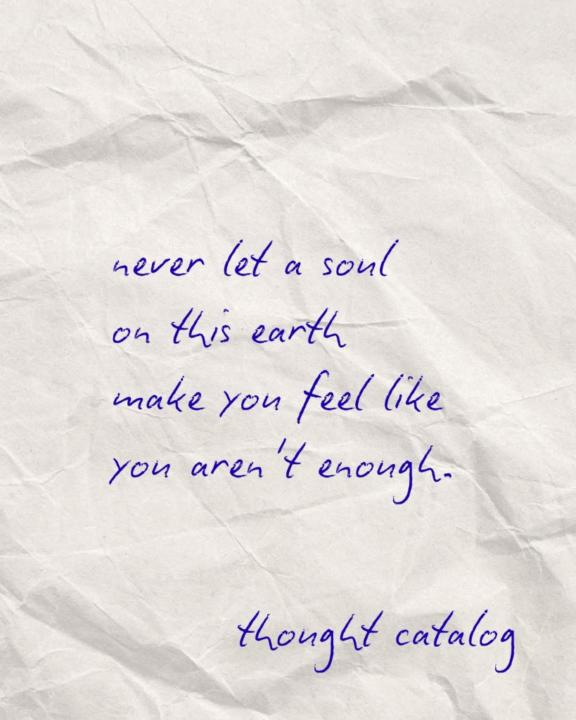 never let a soul
on this earth
make you feel like
you aren't enough.
thought catalog